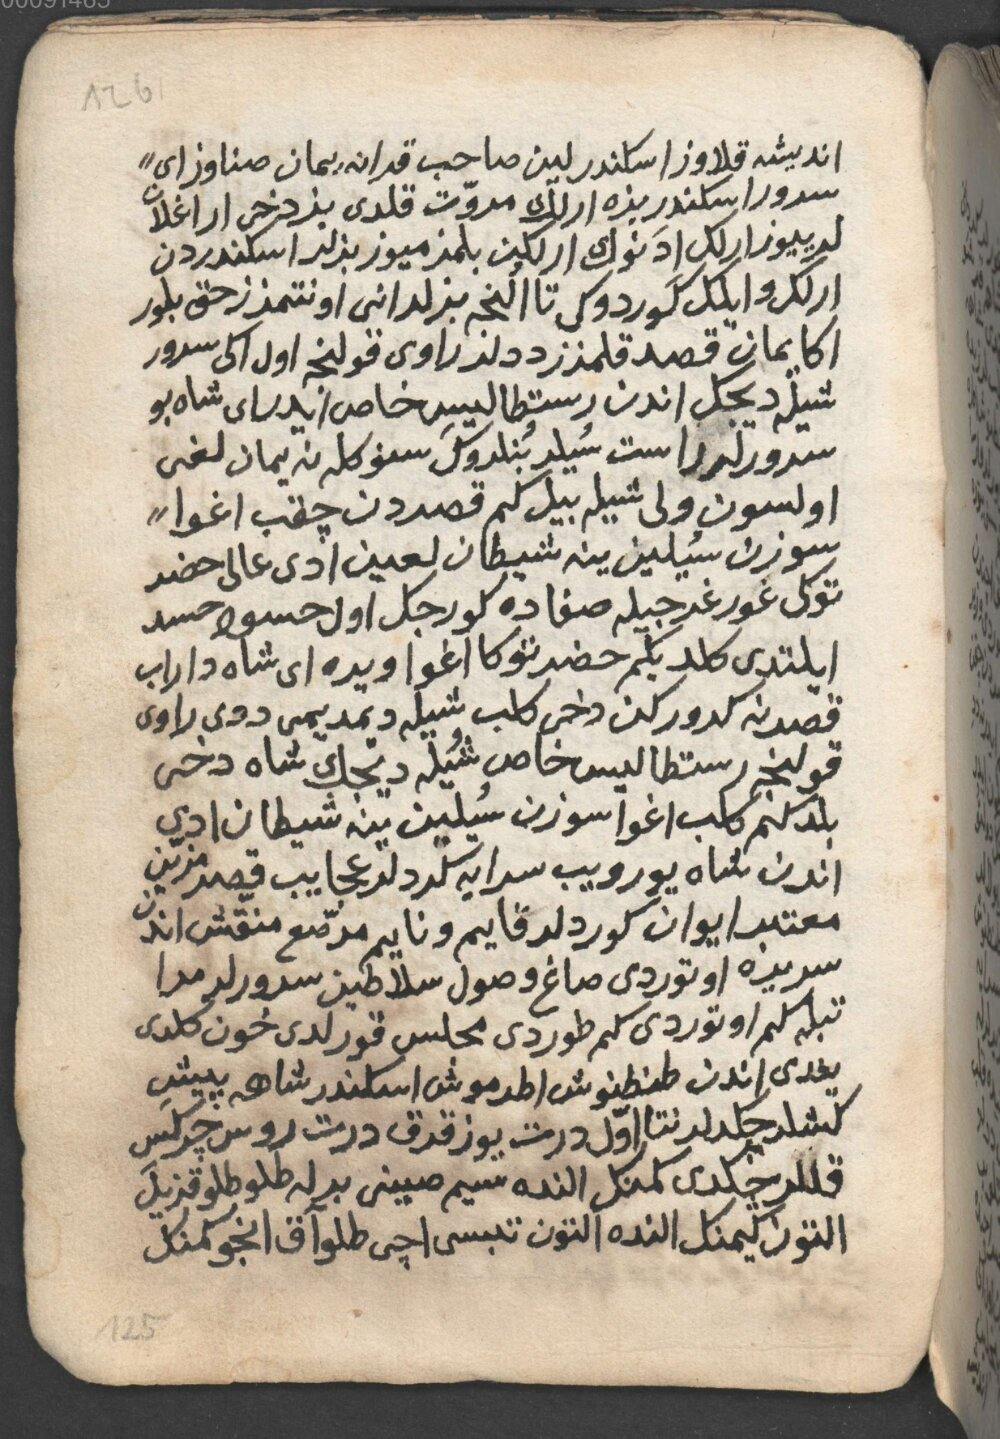 00091465
126
اندیشه قلاوز اسکندرلین صاحب قدانه یمان صناوز ای
سرور اسکندر بزه ارلك مروّت قلدی بز دخی ار اغلان
لریيوز ارلك ادَ نوك ارلکین بلمز میوز بزلر اسکندردن
ارلك و ایلك کوردوکی تا الُنجه بزلر انی اونتمذز حق بلور
اکا یمان قصد قلمذز ددلر راوی قولنجه اول اکی سرور
شیله دیجك اندن رستطالیس خاص ایدر ای شاه بو
سرورلر راست سُیلر بُنلروك سنوکله نه یمان لغی
اولسون ولی شیله بیل کم قصردن چقب اغوا
سوزن سُیلین ینه شیطان لعین ادی عالی حضر
توکی غور غرجیله صفاده کورجك اول حسود حسد
ایلتدی کلدیکم حضرتوکا اغوا ویره ای شاه داراب
قصرنه کدورکن دخی کلب شیله دیمدیمی ددی راوی
قولنجه رستطالیس خاص شُیله دیجك شاه دخی
بلدکم کلب اغوا سوزن سُیلین ینه شیطان ادی
اندن شاه یورویب سرایه کردلر عجایب قصر مزیّن
معتبر ایوان کوردلر قایم و نایم مرصّع منقّش اندن
سریره اوتوردی صاغ و صول سلاطین سرورلر مرا
تبله کم اوتوردی کم طوردی مجلس قورلدی خون کلدی
یندی اندن طنطنوش اطرموش اسکندر شاهه پیش
کشلر چکدلر نتا اوّل درت یوز قرق درت روس چرکس
قللر چکدی کمنك النده سیم صینی برله طلو طلو قزیل
التون کیمنك النده التون تبسی اچی طلو آق انجو کمنك
125